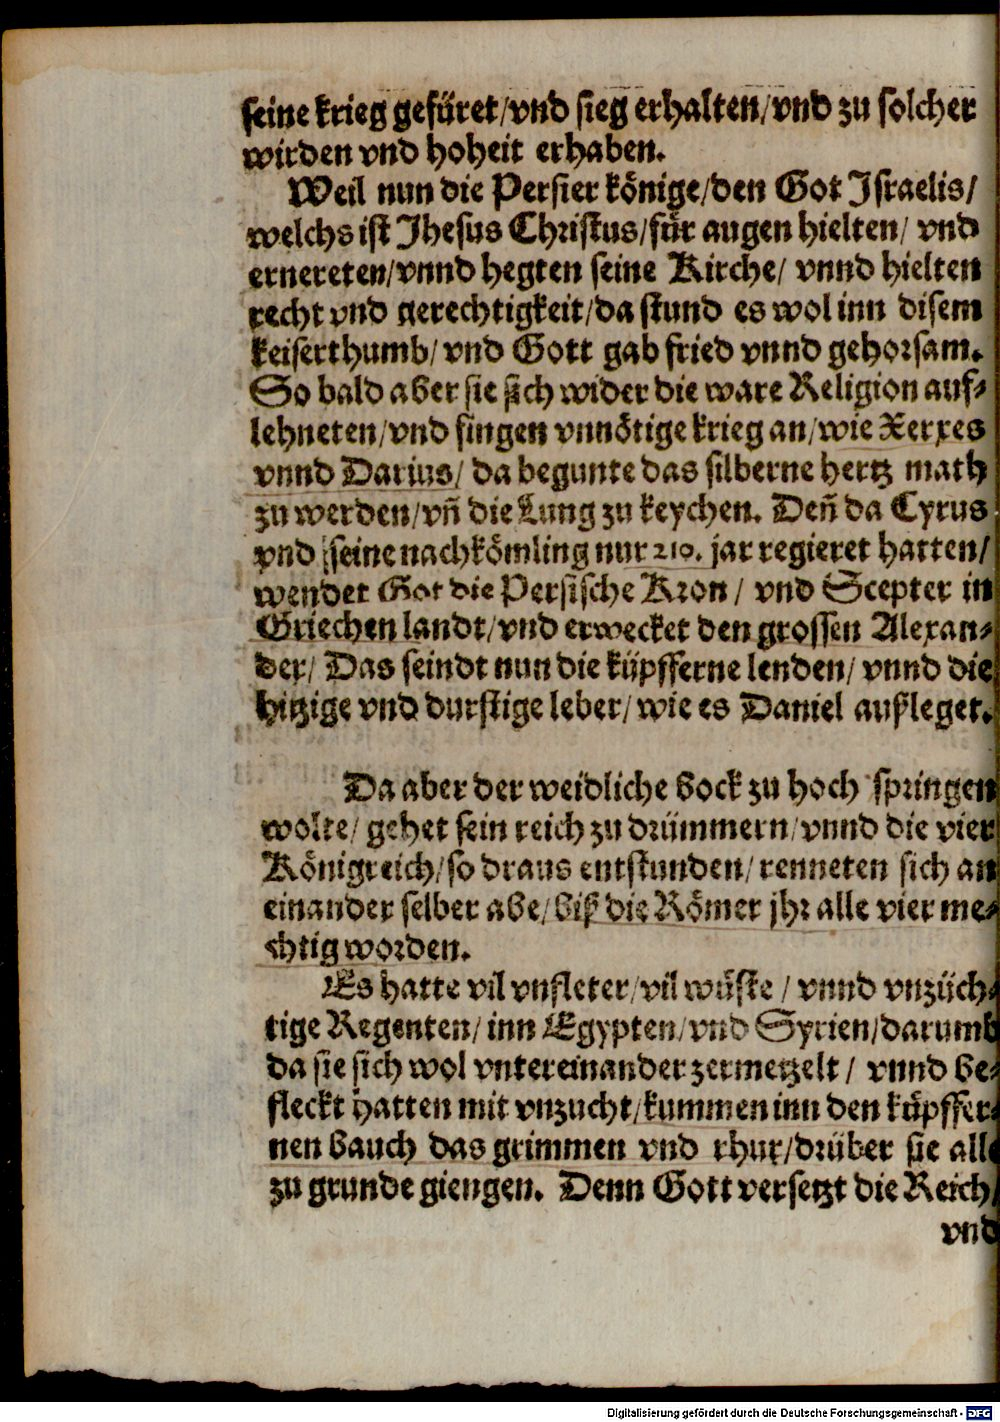 seine krieg gefüret/vnd sieg erhalten/vnd zu solcher
wirden vnd hoheit erhaben.
Weil nun die Persier könige/den Got Israelis/
welchs ist Jhesus Christus/für augen hielten/ vnd
ernereten/vnnd hegten seine Kirche/ vnnd hielten
recht vnd gerechtigkeit/da stund es wol inn disem
keiserthumb/ vnd Gott gab fried vnnd gehorsam.
So bald aber sie sich wider die ware Religion auf-
lehneten/vnd fingen vnnötige krieg an/wie Xerxes
vnnd Darius/ da begunte das silberne hertz math
zu werden/vn̄ die Lung zu keychen. Den̄ da Cyrus
vnd seine nachkömling nur 210. jar regieret hatten/
wendet Got die Persische Kron/ vnd Scepter in
Griechen landt/vnd erwecket den grossen Alexan-
der/ Das seindt nun die küpfferne lenden/ vnnd die
hitzige vnd durstige leber/ wie es Daniel außleget.
Da aber der weidliche bock zu hoch springen
wolte/ gehet sein reich zu drümmern/vnnd die vier
Königreich/so draus entstunden/ renneten sich an
einander selber abe/biß die Römer jhr alle vier me-
chtig worden.
Es hatte vil vnfleter/vil wüste/ vnnd vnzüch-
tige Regenten/ inn Egypten/vnd Syrien/darumb
da sie sich wol vntereinander zermetzelt/ vnnd be-
fleckt hatten mit vnzucht/kummen inn den küpffer-
nen bauch das grimmen vnd rhur/drüber sie alle
zu grunde giengen. Denn Gott versetzt die Reich/
vnd
Digitalisierung gefördert durch die Deutsche Forschungsgemeinschaft - DFG